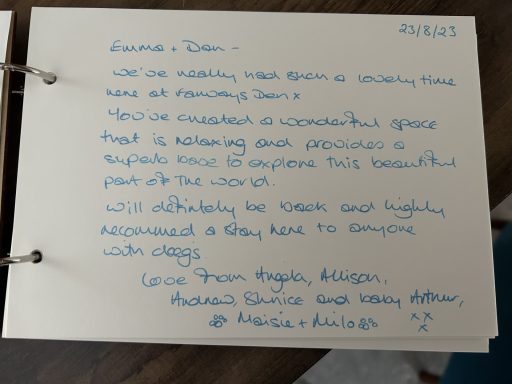 23/8/23
Emma + Dan -
We've really had such a lovely time
here at Fairways Den x
You've created a wonderful space
that is relaxing and provides a
superb base to explore this beautiful
part of the world.
Will definitely be back and highly
recommend a stay here to anyone
with dogs.
Love from Angela, Allison,
Andrew, Shnice and baby Arthur,
Maisie + Milo x x
x